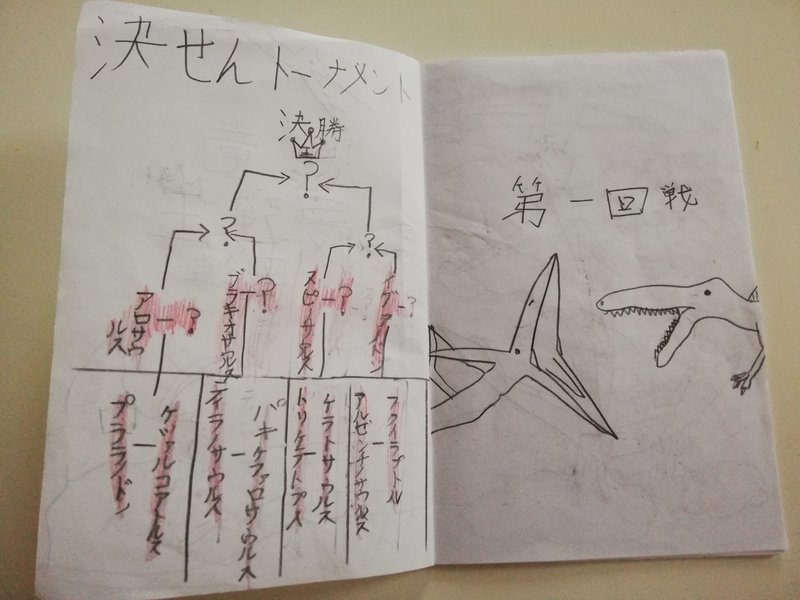 決せんトーナメント
決勝
?
?
?
アロサウルス
ー?
ブラキオサウルス
ー?
スピノサウルス
ー?
イグアノドン
ー?
プテラノドン
ー
ケツァルコアトルス
ティラノサウルス
ー
パキケファロサウルス
トリケラトプス
ー
ケラトサウルス
アルゼンチノサウルス
ー
フクイラプトル
第一回戦